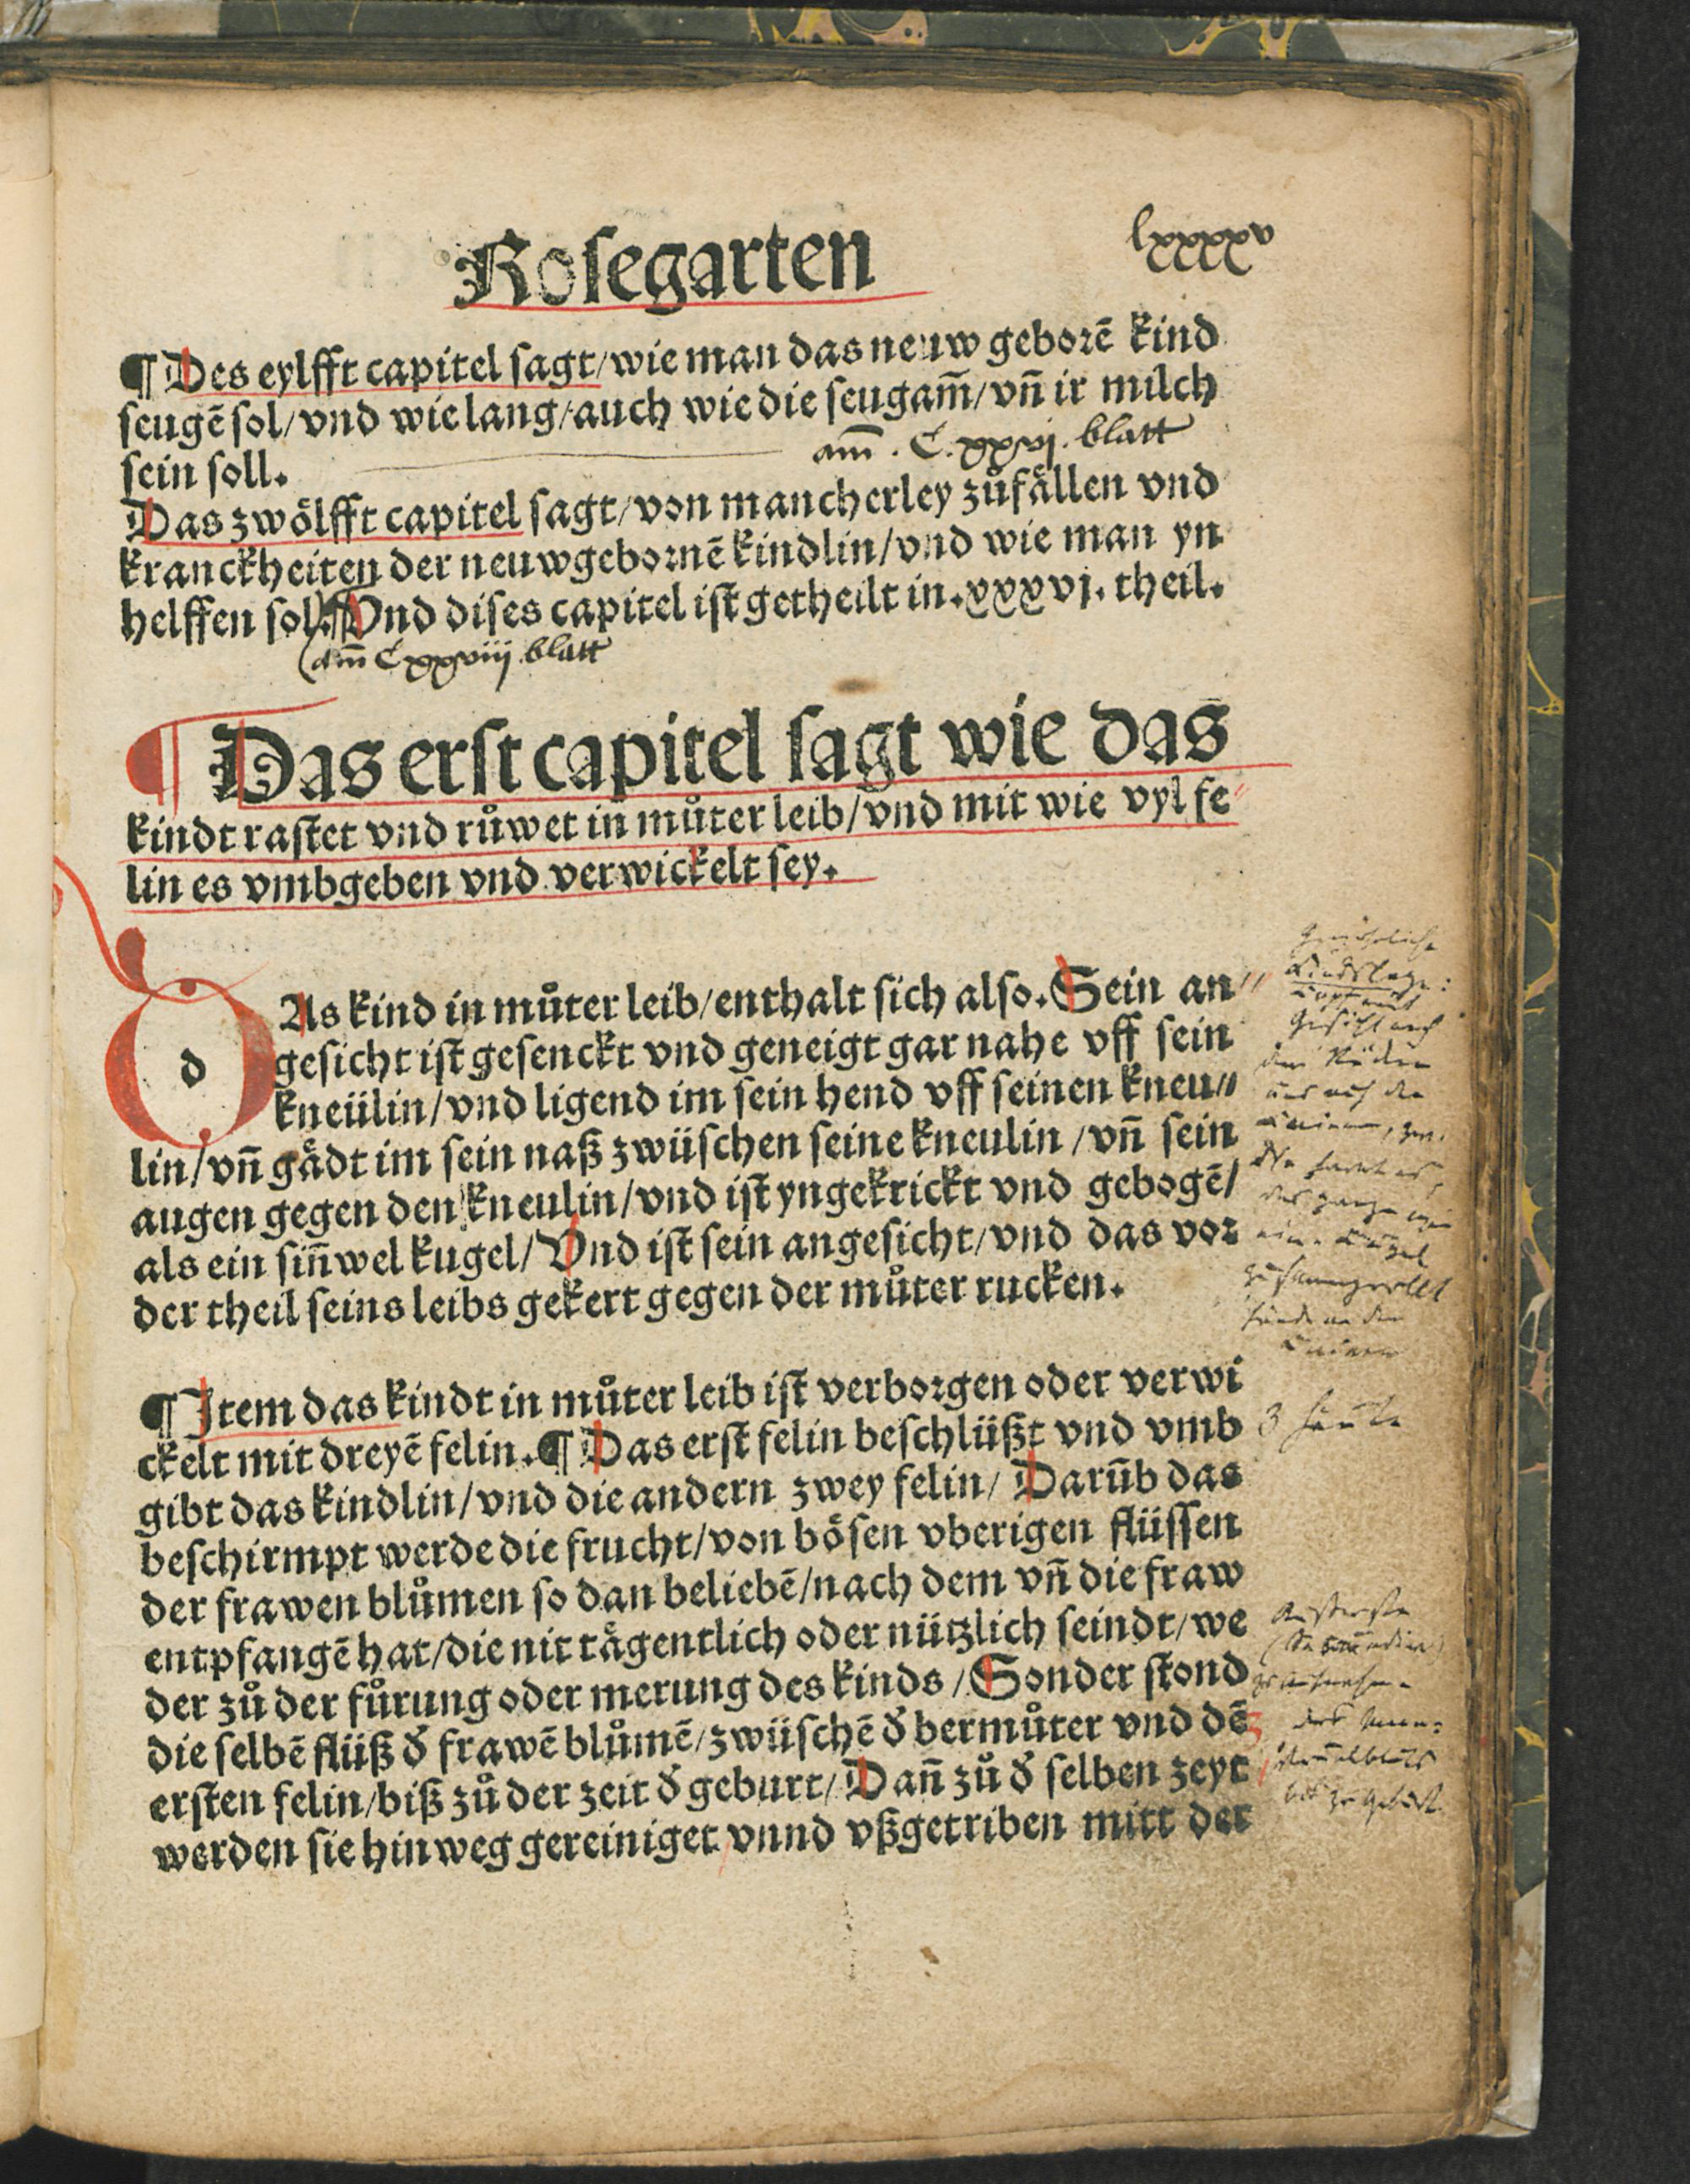 Rosegarten
lxxxxv
¶ Des eylfft capitel sagt/wie man das neuw geborē kind
seugē sol/vnd wie lang/auch wie die seugam̄/vn̄ ir milch
sein soll.
am̄ . C. xxvj. blatt
Das zwölfft capitel sagt/von mancherley zůfällen vnd
kranckheiten der neuwgebornē kindlin/vnd wie man yn
helffen sol. ¶ Vnd dises capitel ist getheilt in.xxxvj. theil.
(am̄ Cxxviij blatt
¶ Das erst capitel sagt wie das
kindt rastet vnd růwet in můter leib/vnd mit wie vyl fe
lin es vmbgeben vnd verwickelt sey.
DAs kind in můter leib/enthalt sich also. Sein an⸗
gesicht ist gesenckt vnd geneigt gar nahe vff sein
kneülin/vnd ligend im sein hend vff seinen kneu⸗
lin/vn̄ gådt im sein naß zwüschen seine kneulin/vn̄ sein
augen gegen den kneulin/vnd ist yngekrickt vnd gebogē/
als ein sin̄wel kugel/Vnd ist sein angesicht/vnd das vor
der theil seins leibs gekert gegen der můter rucken.
¶ Item das kindt in můter leib ist verborgen oder verwi
ckelt mit dreyē felin. ¶ Das erst felin beschlüßt vnd vmb
3 Häute
gibt das kindlin/vnd die andern zwey felin/ Darūb das
beschirmpt werde die frucht/von bösen vberigen flüssen
der frawen blůmen so dan beliebē/nach dem vn̄ die fraw
entpfangē hat/die nit tågentlich oder nützlich seindt/we
der zů der fůrung oder merung des kinds/Sonder stond
die selbē flüß ð frawē blůmē/zwüschē ð bermůter vnd dē
ersten felin/biß zů der zeit ð geburt/Dan̄ zů ð selben zeyt
werden sie hinweg gereiniget vnnd vßgetriben mitt der